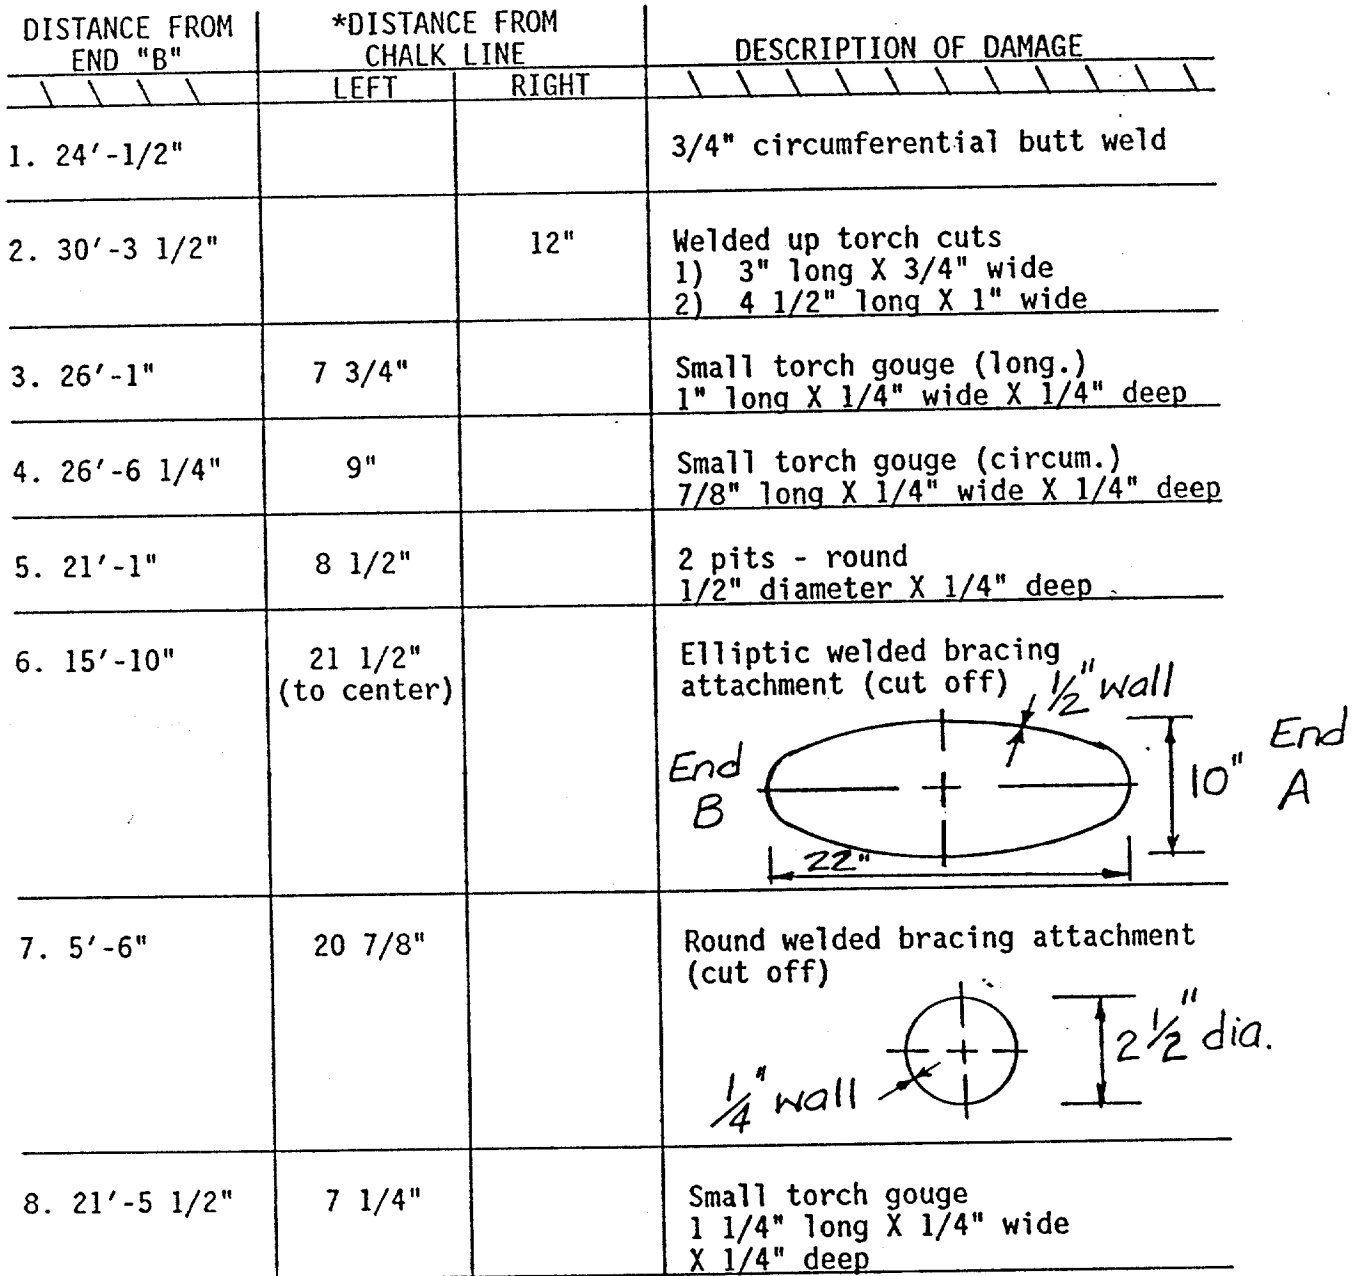 DISTANCE FROM
END "B"
*DISTANCE FROM
CHALK LINE
DESCRIPTION OF DAMAGE
LEFT RIGHT
1. 24'-1/2" 3/4" circumferential butt weld
2. 30'-3 1/2" 12" Welded up torch cuts
1) 3" long X 3/4" wide
2) 4 1/2" long X 1" wide
3. 26'-1" 7 3/4" Small torch gouge (long.)
1" long X 1/4" wide X 1/4" deep
4. 26'-6 1/4" 9" Small torch gouge (circum.)
7/8" long X 1/4" wide X 1/4" deep
5. 21'-1" 8 1/2" 2 pits - round
1/2" diameter X 1/4" deep
6. 15'-10" 21 1/2" Elliptic welded bracing
(to center) attachment (cut off)
1/2" wall
End
B
10"
End
A
22"
7. 5'-6" 20 7/8" Round welded bracing attachment
(cut off)
2 1/2" dia.
1/4" wall
8. 21'-5 1/2" 7 1/4" Small torch gouge
1 1/4" long X 1/4" wide
X 1/4" deep